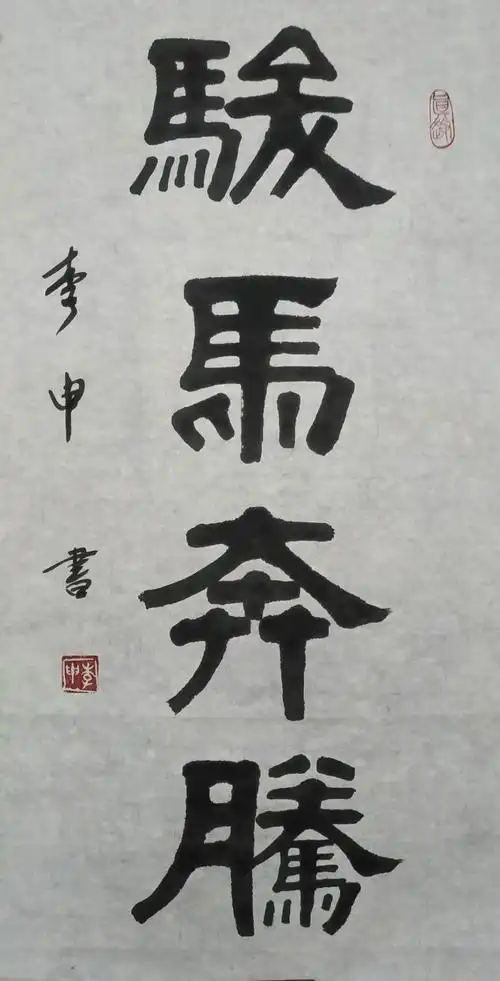 駿馬奔騰
李申書
李申